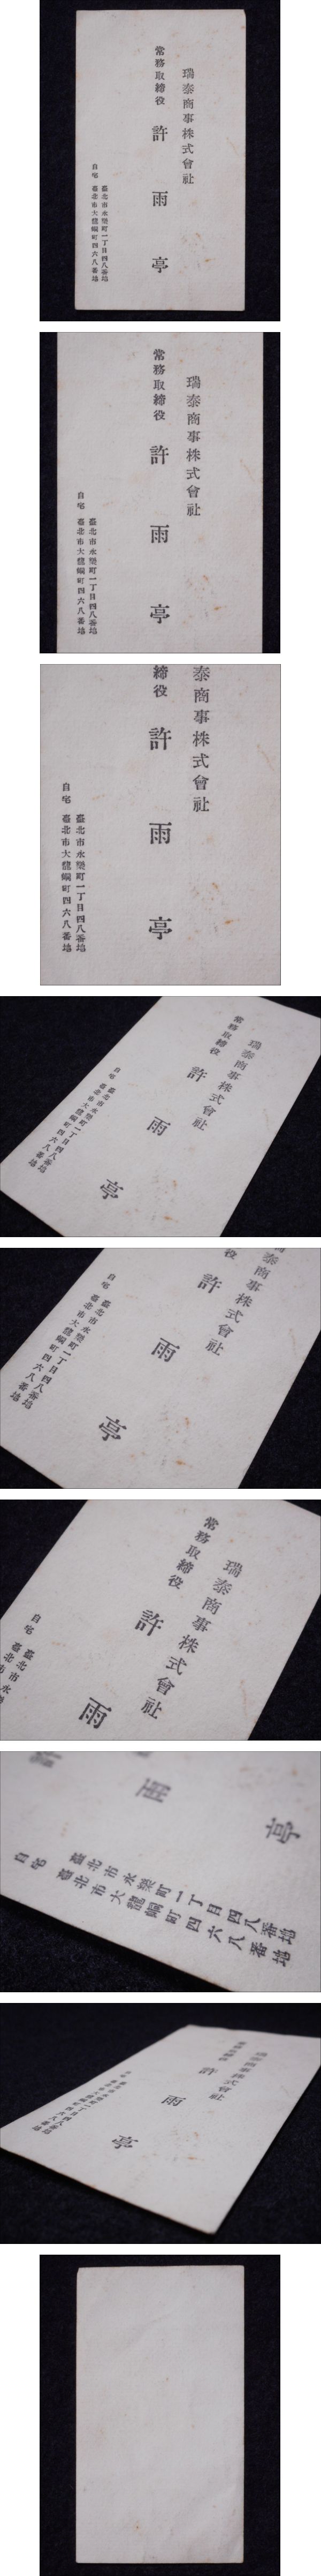 瑞泰商事株式會社
常務取締役 許雨亭
臺北市永樂町一丁目四八番地
自宅 臺北市大龍峒町四六八番地
瑞泰商事株式會社
常務取締役 許雨亭
臺北市永樂町一丁目四八番地
自宅 臺北市大龍峒町四六八番地
泰商事株式會社
締役 許雨亭
臺北市永樂町一丁目四八番地
自宅 臺北市大龍峒町四六八番地
瑞泰商事株式會社
常務取締役 許雨亭
臺北市永樂町一丁目四八番地
自宅 臺北市大龍峒町四六八番地
泰商事株式會社
役 許雨亭
臺北市永樂町一丁目四八番地
自宅 臺北市大龍峒町四六八番地
瑞泰商事株式會社
常務取締役 許雨
臺北市永
自宅 臺北市
雨亭
臺北市永樂町一丁目四八番地
自宅 臺北市大龍峒町四六八番地
瑞泰商事株式會社
常務取締役 許雨亭